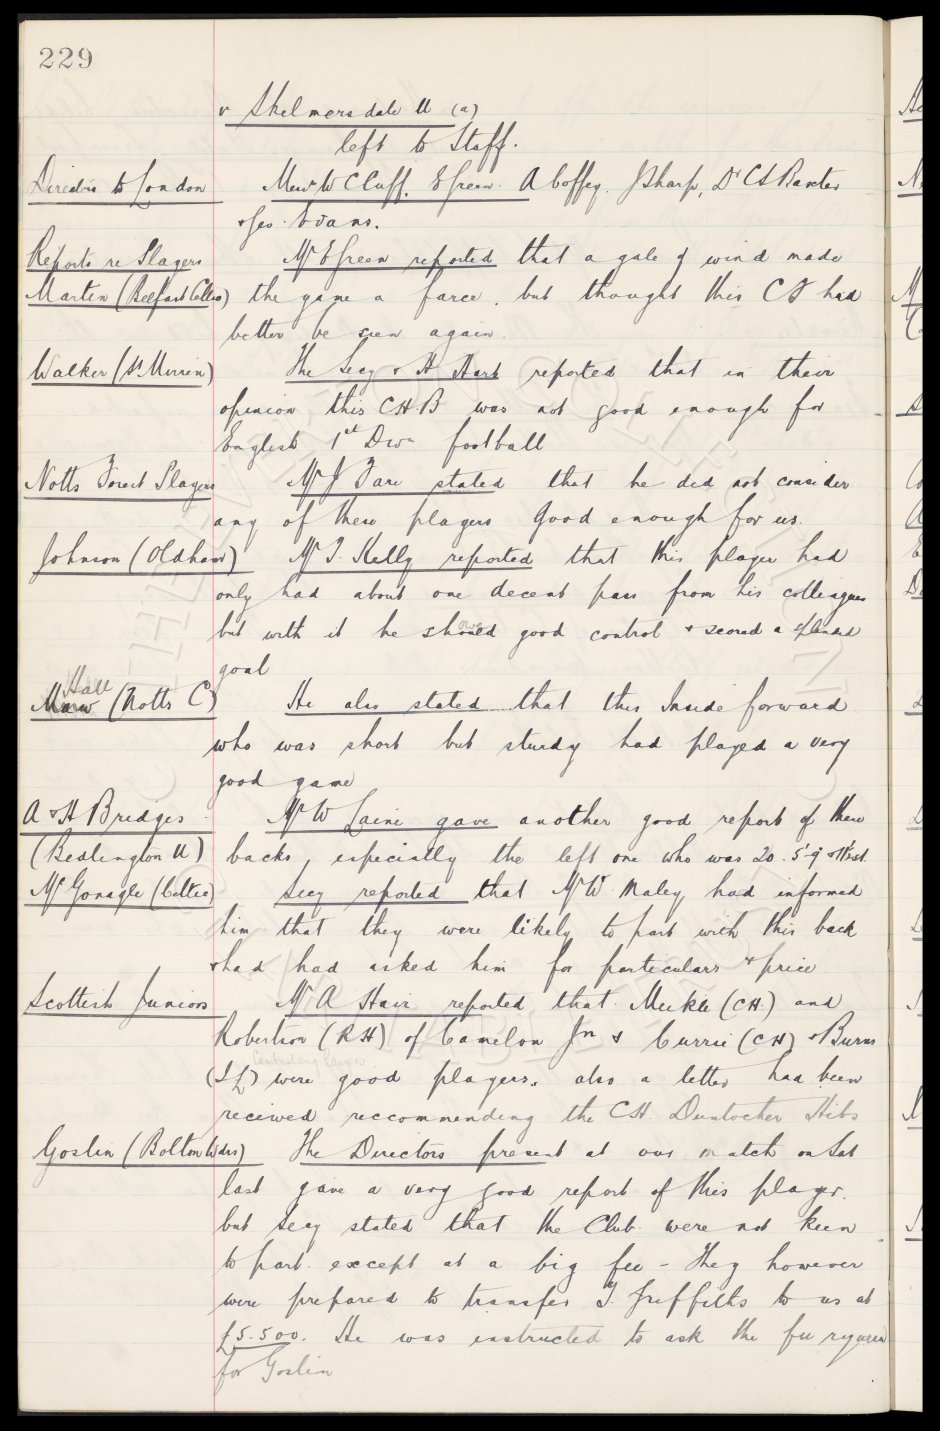 229
v Skelmersdale U (a)
left to Staff.
Directors to London Messrs W C Cuff, E Green. A Coffey. J Sharp, Dr C S Baxter
& Geo. Evans.
Reports re Players Mr E Green reported that a gale of wind made
Martin (Belfast Celtic) the game a farce, but thought this CF had
better be seen again.
Walker (St Mirren) The Secy & H Hart reported that in their
opinion this CHB was not good enough for
English 1st Divn football
Notts Forest Players Mr J Fare stated that he did not consider
any of these players good enough for us.
Johnson (Oldham) Mr T. Kelly reported that this player had
only had about one decent pass from his colleagues
but with it he showed good control & scored a splendid
goal
Hall (Notts C) He also stated that this Inside forward
who was short but sturdy had played a very
good game
A & H Bridges Mr W Laine gave another good report of these
(Bedlington U) backs, especially the left one who was 20. 5'9 & 11st.
McGonagle (Celtic) Secy reported that Mr W. Maley had informed
him that they were likely to part with this back
& had had asked him for particulars & price
Scottish Juniors Mr A Hair reported that Meikle (CH) and
Robertson (RH) of Camelon Jn & Currie (CH) & Burns
Cambuslang Rangers
(IL) were good players. also a letter had been
received reccommending the CH. Duntocher Hibs
Goslin (Bolton Wdrs) The Directors present at our match on Sat
last gave a very good report of this player.
but Secy stated that the Club were not keen
to part except at a big fee - They however
were prepared to transfer T. Griffiths to us at
£5.500. He was instructed to ask the fee required
for Goslin